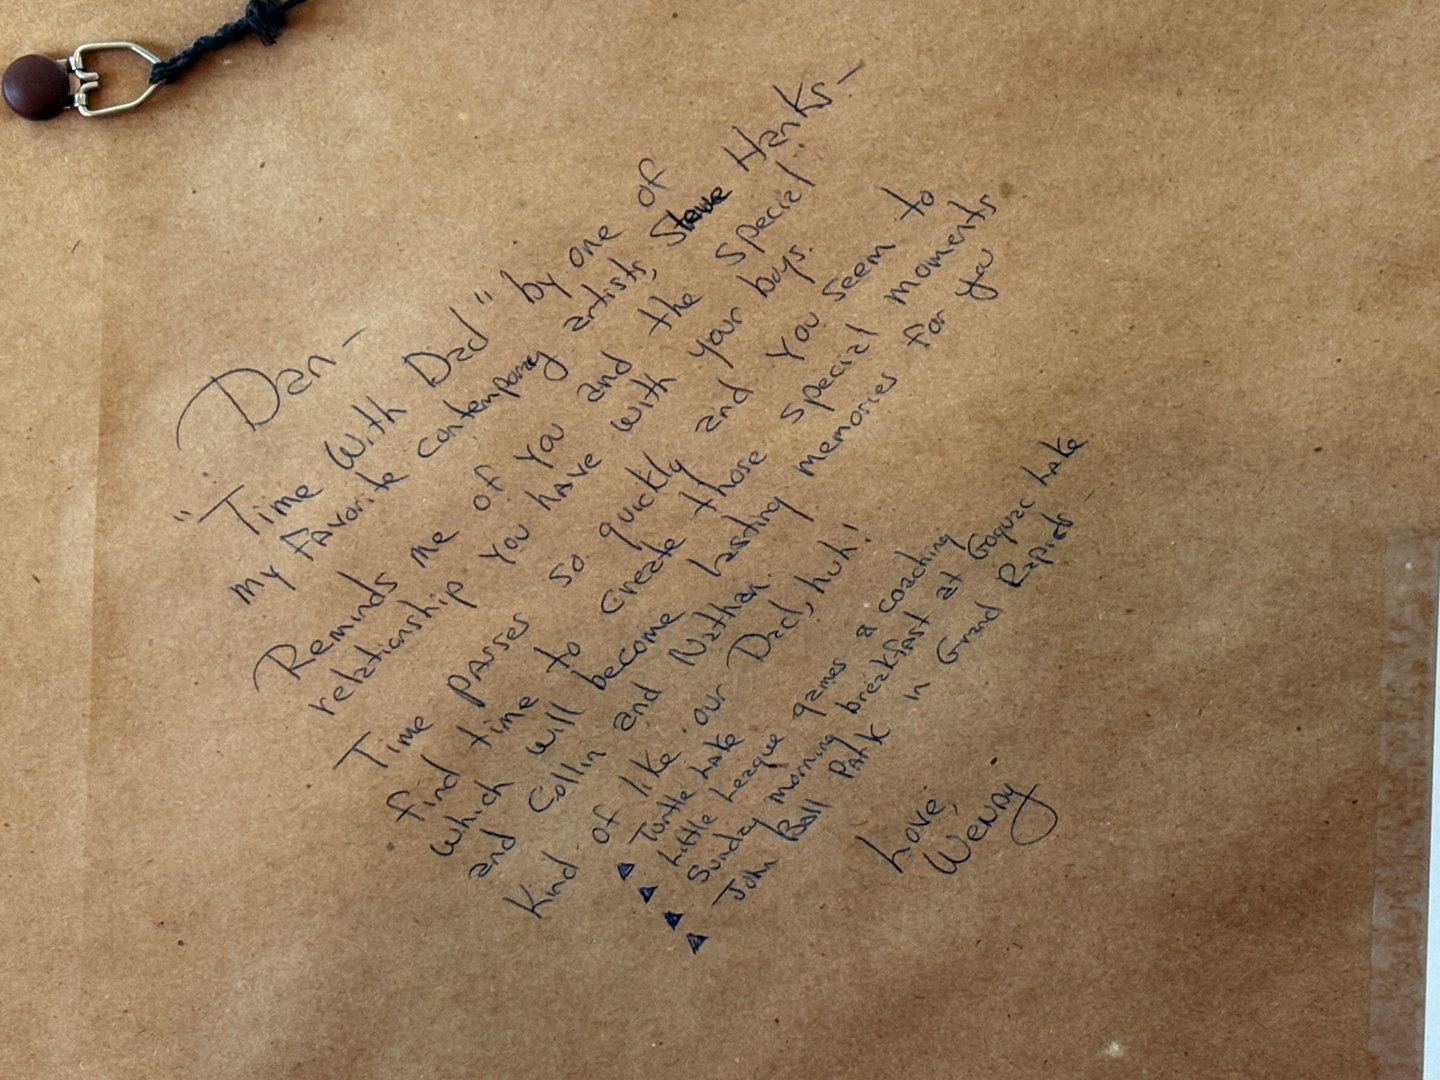 Dan —
"Time With Dad" by one of
my favorite contemporary artists, Steve Hanks —
Reminds me of you and the special
relationship you have with your boys.
Time passes so quickly and you seem to
find time to create those special moments
which will become lasting memories for you
and Collin and Nathan.
Kind of like our Dad, huh!
▲ Turtle Lake
▲ Little League games & coaching
▲ Sunday morning breakfast at Goguac Lake
▲ John Ball Park in Grand Rapids
Love,
Wendy